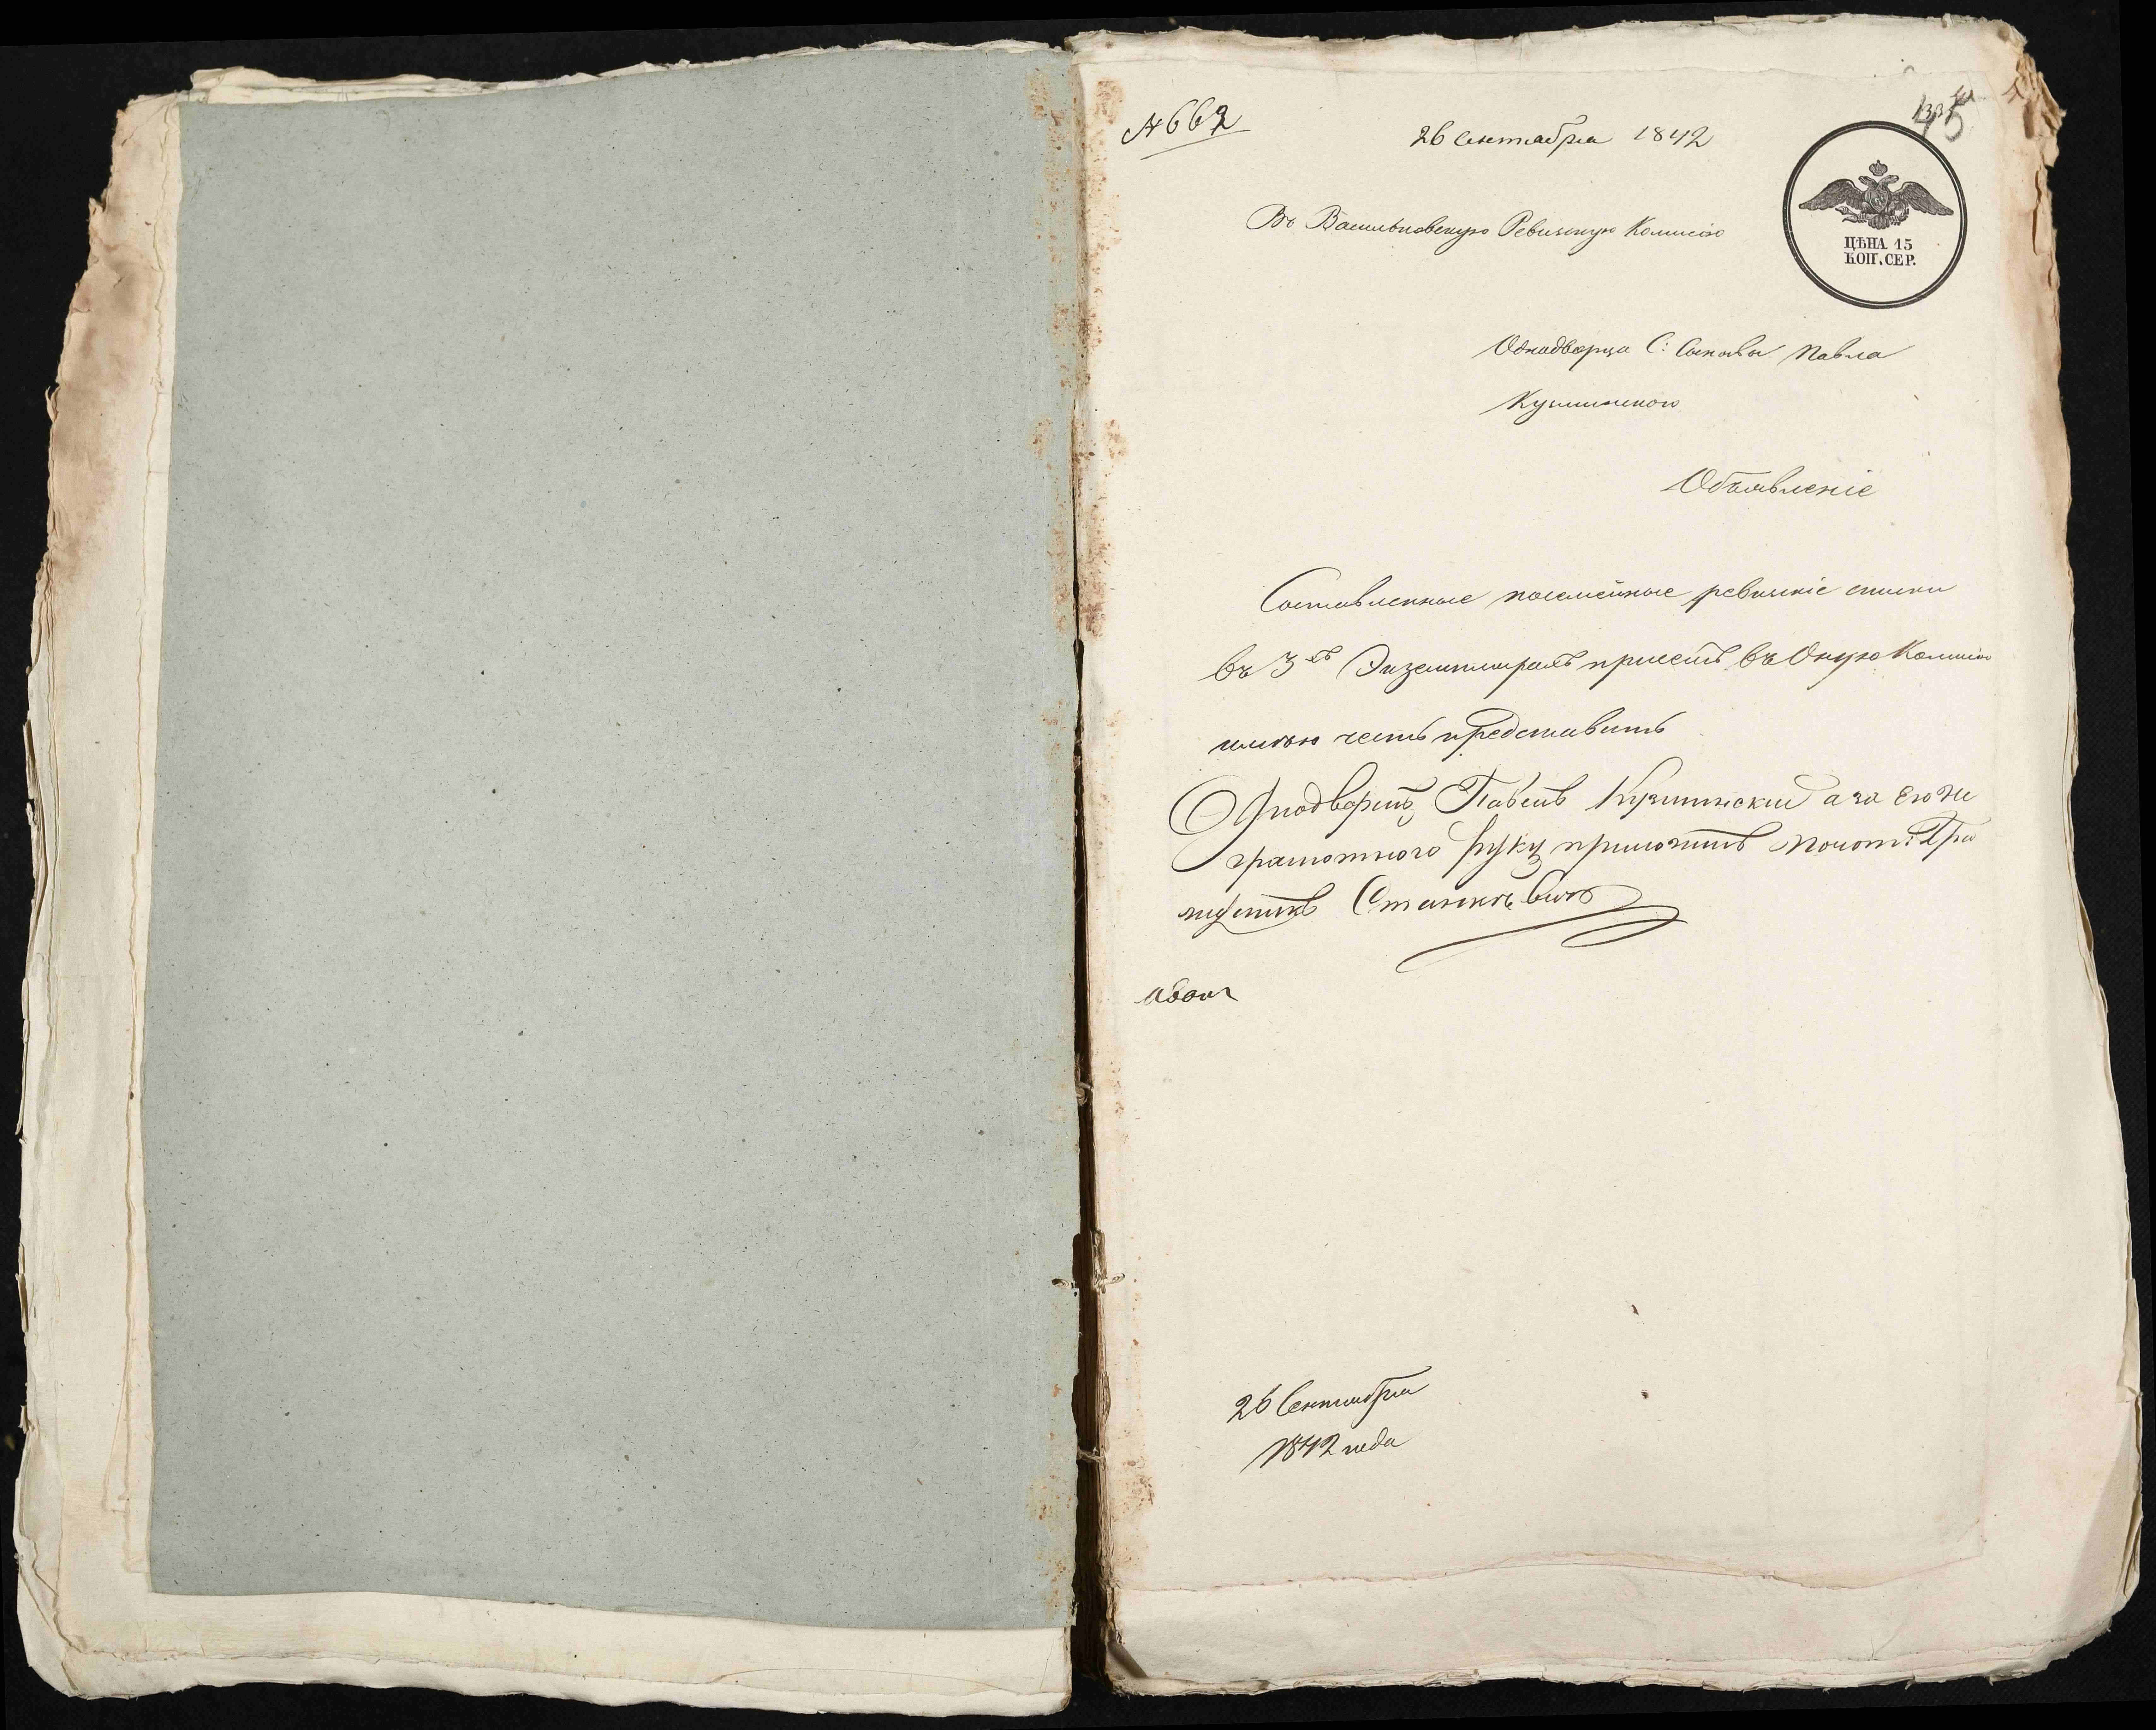 № 662
26 Сентября 1842
45
Въ Васильковскую Ревизскую Комисію
ЦѢНА 15
КОП. СЕР.
Однодворца С: Павла
Кузминского
Объявленіе
Составленные посемейные ревизкіе списки
въ 3хъ Экземплярахъ присемъ въ Оную Комисію
имѣю честь представить
Однодворецъ Павелъ Кузминский а за его не
грамотного руку приложилъ Почот: Гра
жданинъ Станкевичъ
26 Сентября
1842 года